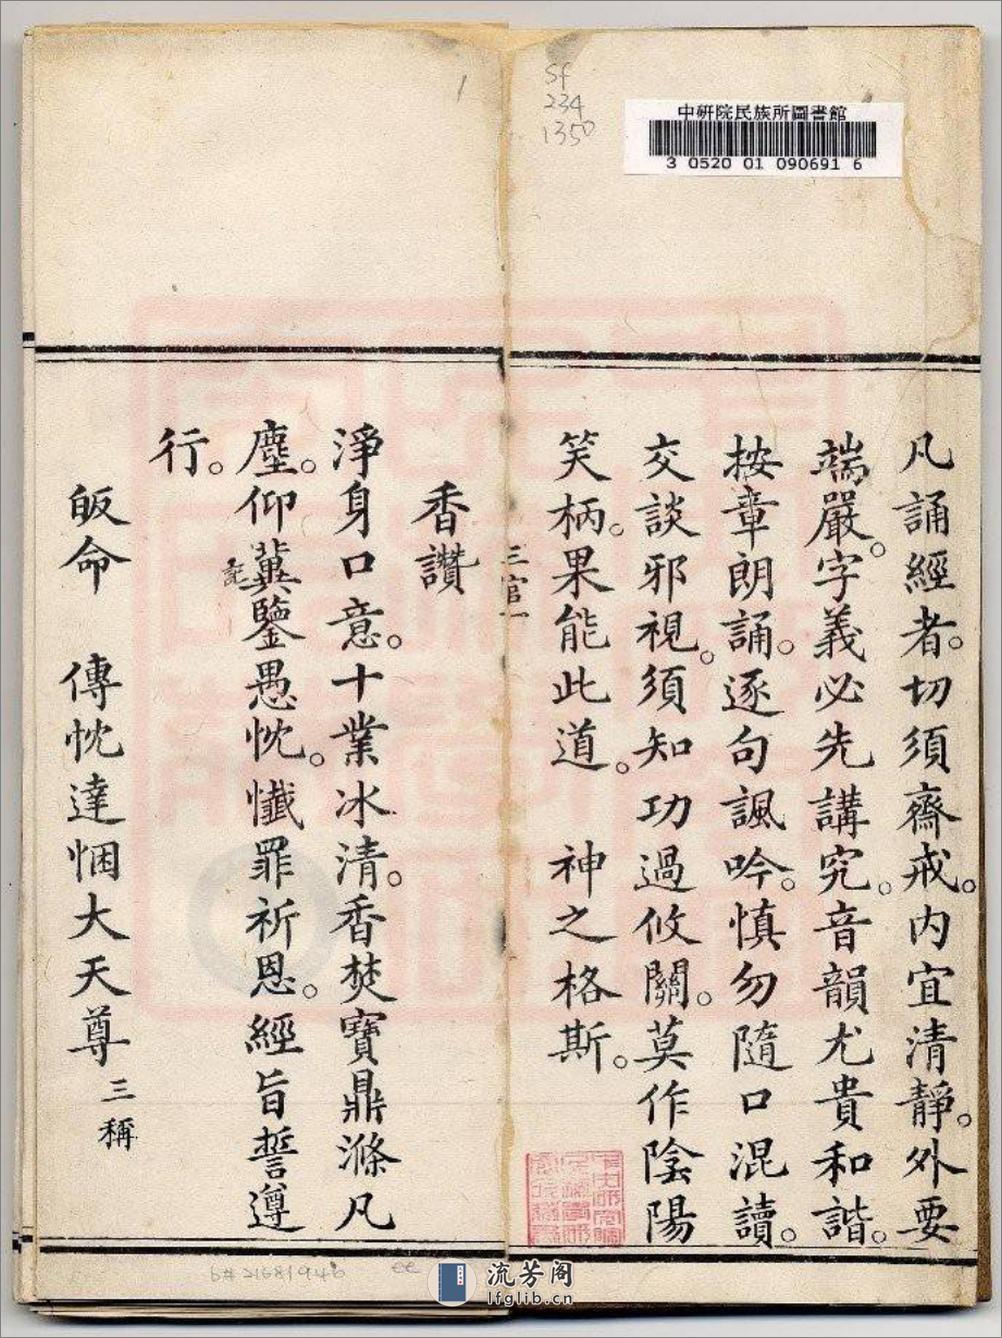 Sf
234
1350
中研院民族所圖書館
3 0520 01 090691 6
凡誦經者。切須齋戒。内宜清靜。外要
端嚴。字義必先講究。音韻尤貴和諧。
按章朗誦。逐句諷吟。慎勿隨口混讀。
交談邪視。須知功過攸關。莫作陰陽
笑柄。果能此道。 神之格斯。
三官 一
香讚
淨身口意。十業冰清。香焚寶鼎滌凡
塵。仰冀鑒愚忱。懺罪祈恩。經旨誓遵
行。
皈命 傳忱達悃大天尊 三稱
1
b# 21681946
ee
流芳阁
lfglib.cn